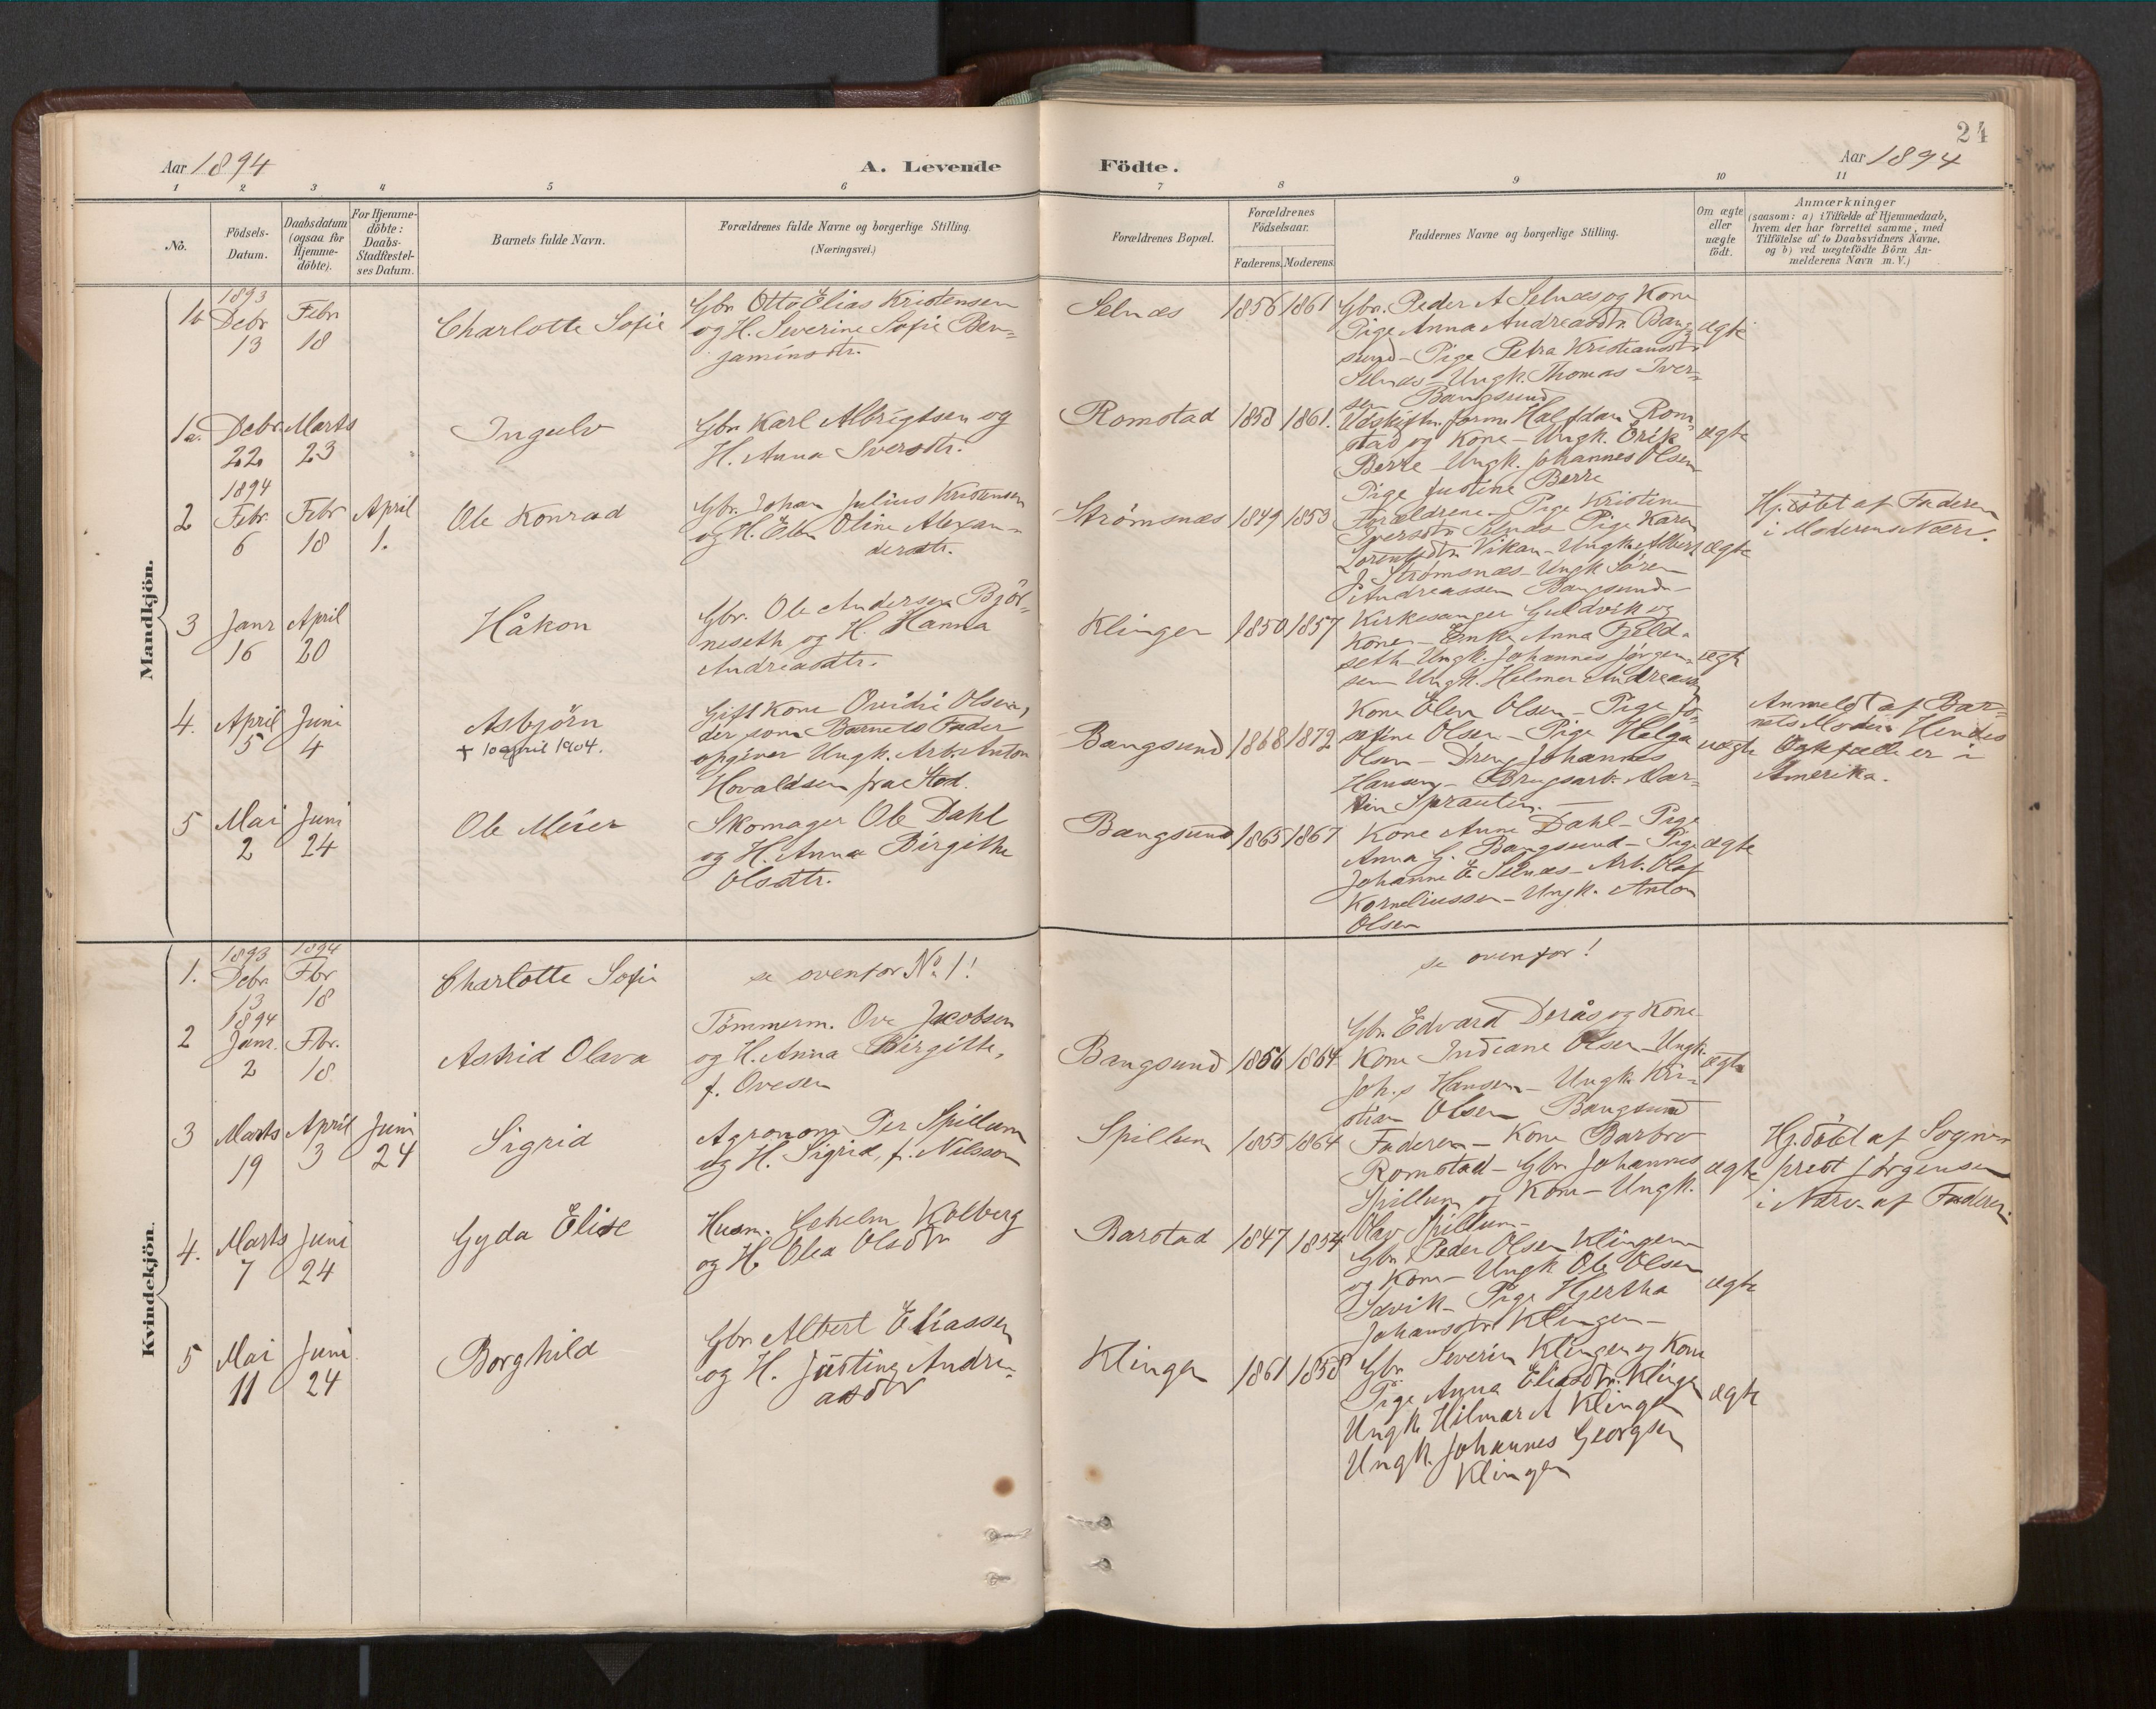 24
Aar 1894
A. Levende
Födte.
Aar 1894
1 2 3 4 5 6 7 8 9 10 11
No.
Födsels-
Datum.
Daabsdatum
(ogsaa for
Hjemme-
döbte).
For Hjemme-
döbte:
Daabs-
Stadfæstel-
ses Datum.
Barnets fulde Navn.
Forældrenes fulde Navne og borgerlige Stilling.
(Næringsvei.)
Forældrenes Bopæl.
Forældrenes
Födselsaar.
Faderens. Moderens.
Faddernes Navne og borgerlige Stilling.
Om ægte
eller
uægte
födt.
Anmærkninger
(saasom: a) i Tilfælde af Hjemmedaab,
hvem der har forrettet samme, med
Tilföielse af to Daabsvidners Navne,
og b) ved uægtefödte Börn An-
melderens Navn m. V.)
Mandkjön.
1b
1893
Debr
13
Febr
18
Charlotte Sofie
Gbr. Otto Elias Kristensen
og H. Severine Sofie Ben-
jaminsdtr.
Selnæs
1856 1861
Gbr. Peder A Selnæs og Kone
Pige Anna Andreasdtr. Bang-
sund - Pige Petra Kristiansdtr
Selnæs - Ungk. Thomas Iver-
sen Bangsund
ægte
1a.
Debr
22
Marts
23
Ingulv
Gbr. Karl Albrigtsen og
H. Anna Iversdtr.
Romstad
1858 1861.
Halfdan Rom-
stad og Kone - Ungk. Erik
Berre - Ungk. Johannes Olsen
Pige Justine Berre
ægte
2
1894
Febr.
6
Febr
18
April
1.
Ole Konrad
Gbr. Johan Julius Kristensen
og H. Elen Oline Alexan-
dersdtr.
Strömsnæs
1849 1853
Forældrene - Pige Kristine
Iversdtr Selnæs - Pige Karen
Lorentsdtr. Vikan - Ungk. Albert
J. Strömsnæs - Ungk Sören
Andreassen Bangsund -
ægte
Hj.döbt af Faderen
i Moderens Nærv.
3
Janr
16
April
20
Håkon
Gbr. Ole Andersen Björ-
neseth og H. Hanna
Andreasdtr.
Klingen
1850 1857
Kirkesanger Guldvik og
Kone - Enke Anna Fjeld-
seth - Ungk. Johannes Jörgen-
sen Ungk. Helmer Andreassen
ægte
4.
April
5
Juni
4
Asbjörn
+ 10 april 1904.
Gift Kone Ovidie Olsen,
der som Barnets Fader
opgiver Ungk. Arb. Anton
Hovaldsen fra Stod.
Bangsund
1868 1872
Kone Olen Olsen - Pige Jo-
sefine Olsen - Pige Helga
Olsen - Dreng Johannes
Hansen - Brugsarb. Mar-
tin Sprauten. -
uægte
Anmeldt af Bar-
nets Moder. Hendes
Ægtefælle er i
Amerika.
5
Mai
2
Juni
24
Ole Meier
Skomager Ole Dahl
og H. Anna Birgithe
Olsdtr.
Bangsund
1865 1867
Kone Anne Dahl - Pige
Anna G. Bangsund - Pige
Johanne E Selnæs - Arb. Olaf
Korneliussen - Ungk. Anton
Olsen
ægte
Kvindekjön.
1.
1893
Debr
13
1894
Fbr
18
Charlotte Sofie
se ovenfor No. 1!
se ovenfor!
2
1894
Janr.
2
Fbr.
18
Astrid Olava
Tömmerm. Ove Jacobsen
og H. Anna Birgitte,
f. Ovesen
Bangsund
1856 1864
Gbr. Edvard Derås og Kone
Kone Indiane Olsen - Ungk.
Joh.s Hansen - Ungk. Kri-
stian Olsen Bangsund
ægte
3
Marts
19
April
3
Juni
24
Sigrid
Agronom Per Spillum
og H. Sigrid, f. Nilsson
Spillum
1855 1864
Faderen - Kone Barbro
Romstad - Gbr. Johannes
Spillum og Kone - Ungk.
Olav Spillum -
ægte
Hj.döbt af Sogne-
prest Jörgensen
i Nærv. af Faderen.
4.
Marts
7
Juni
24
Gyda Elise
Husm. Kolberg
og H. Olea Olsdtr
Barstad
1847 1854
Gbr. Peder Olsen Klingen
og Kone - Ungk Ole Olsen
Sævik - Pige Hjertha
Johansdtr Klingen -
ægte
5
Mai
11
Juni
24
Borghild
Gbr. Albert Eliassen
og H. Justine Andre-
asdtr
Klingen
1861 1858
Gbr. Severin Klingen og Kone
Pige Anna Eliasdtr. Klingen
Ungk Hilmar A Klingen
Ungk. Johannes Georgsen
Klingen
ægte